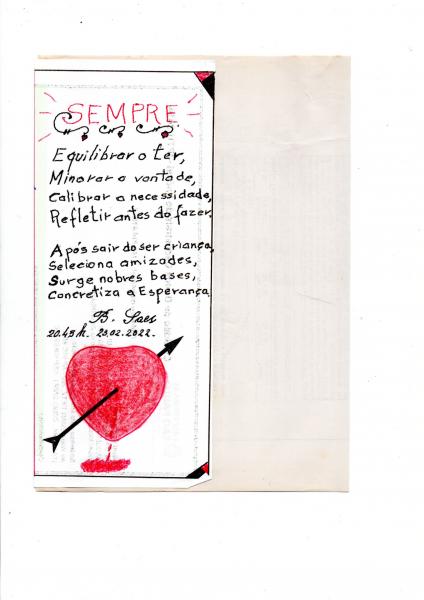 SEMPRE
Equilibrar o ter,
Minorar a vontade,
Calibrar a necessidade,
Refletir antes do fazer.
Após sair do ser criança,
Seleciona amizades,
Surge nobres bases,
Concretiza a Esperança.
B. Saes
20.45h. 20.02.2022.